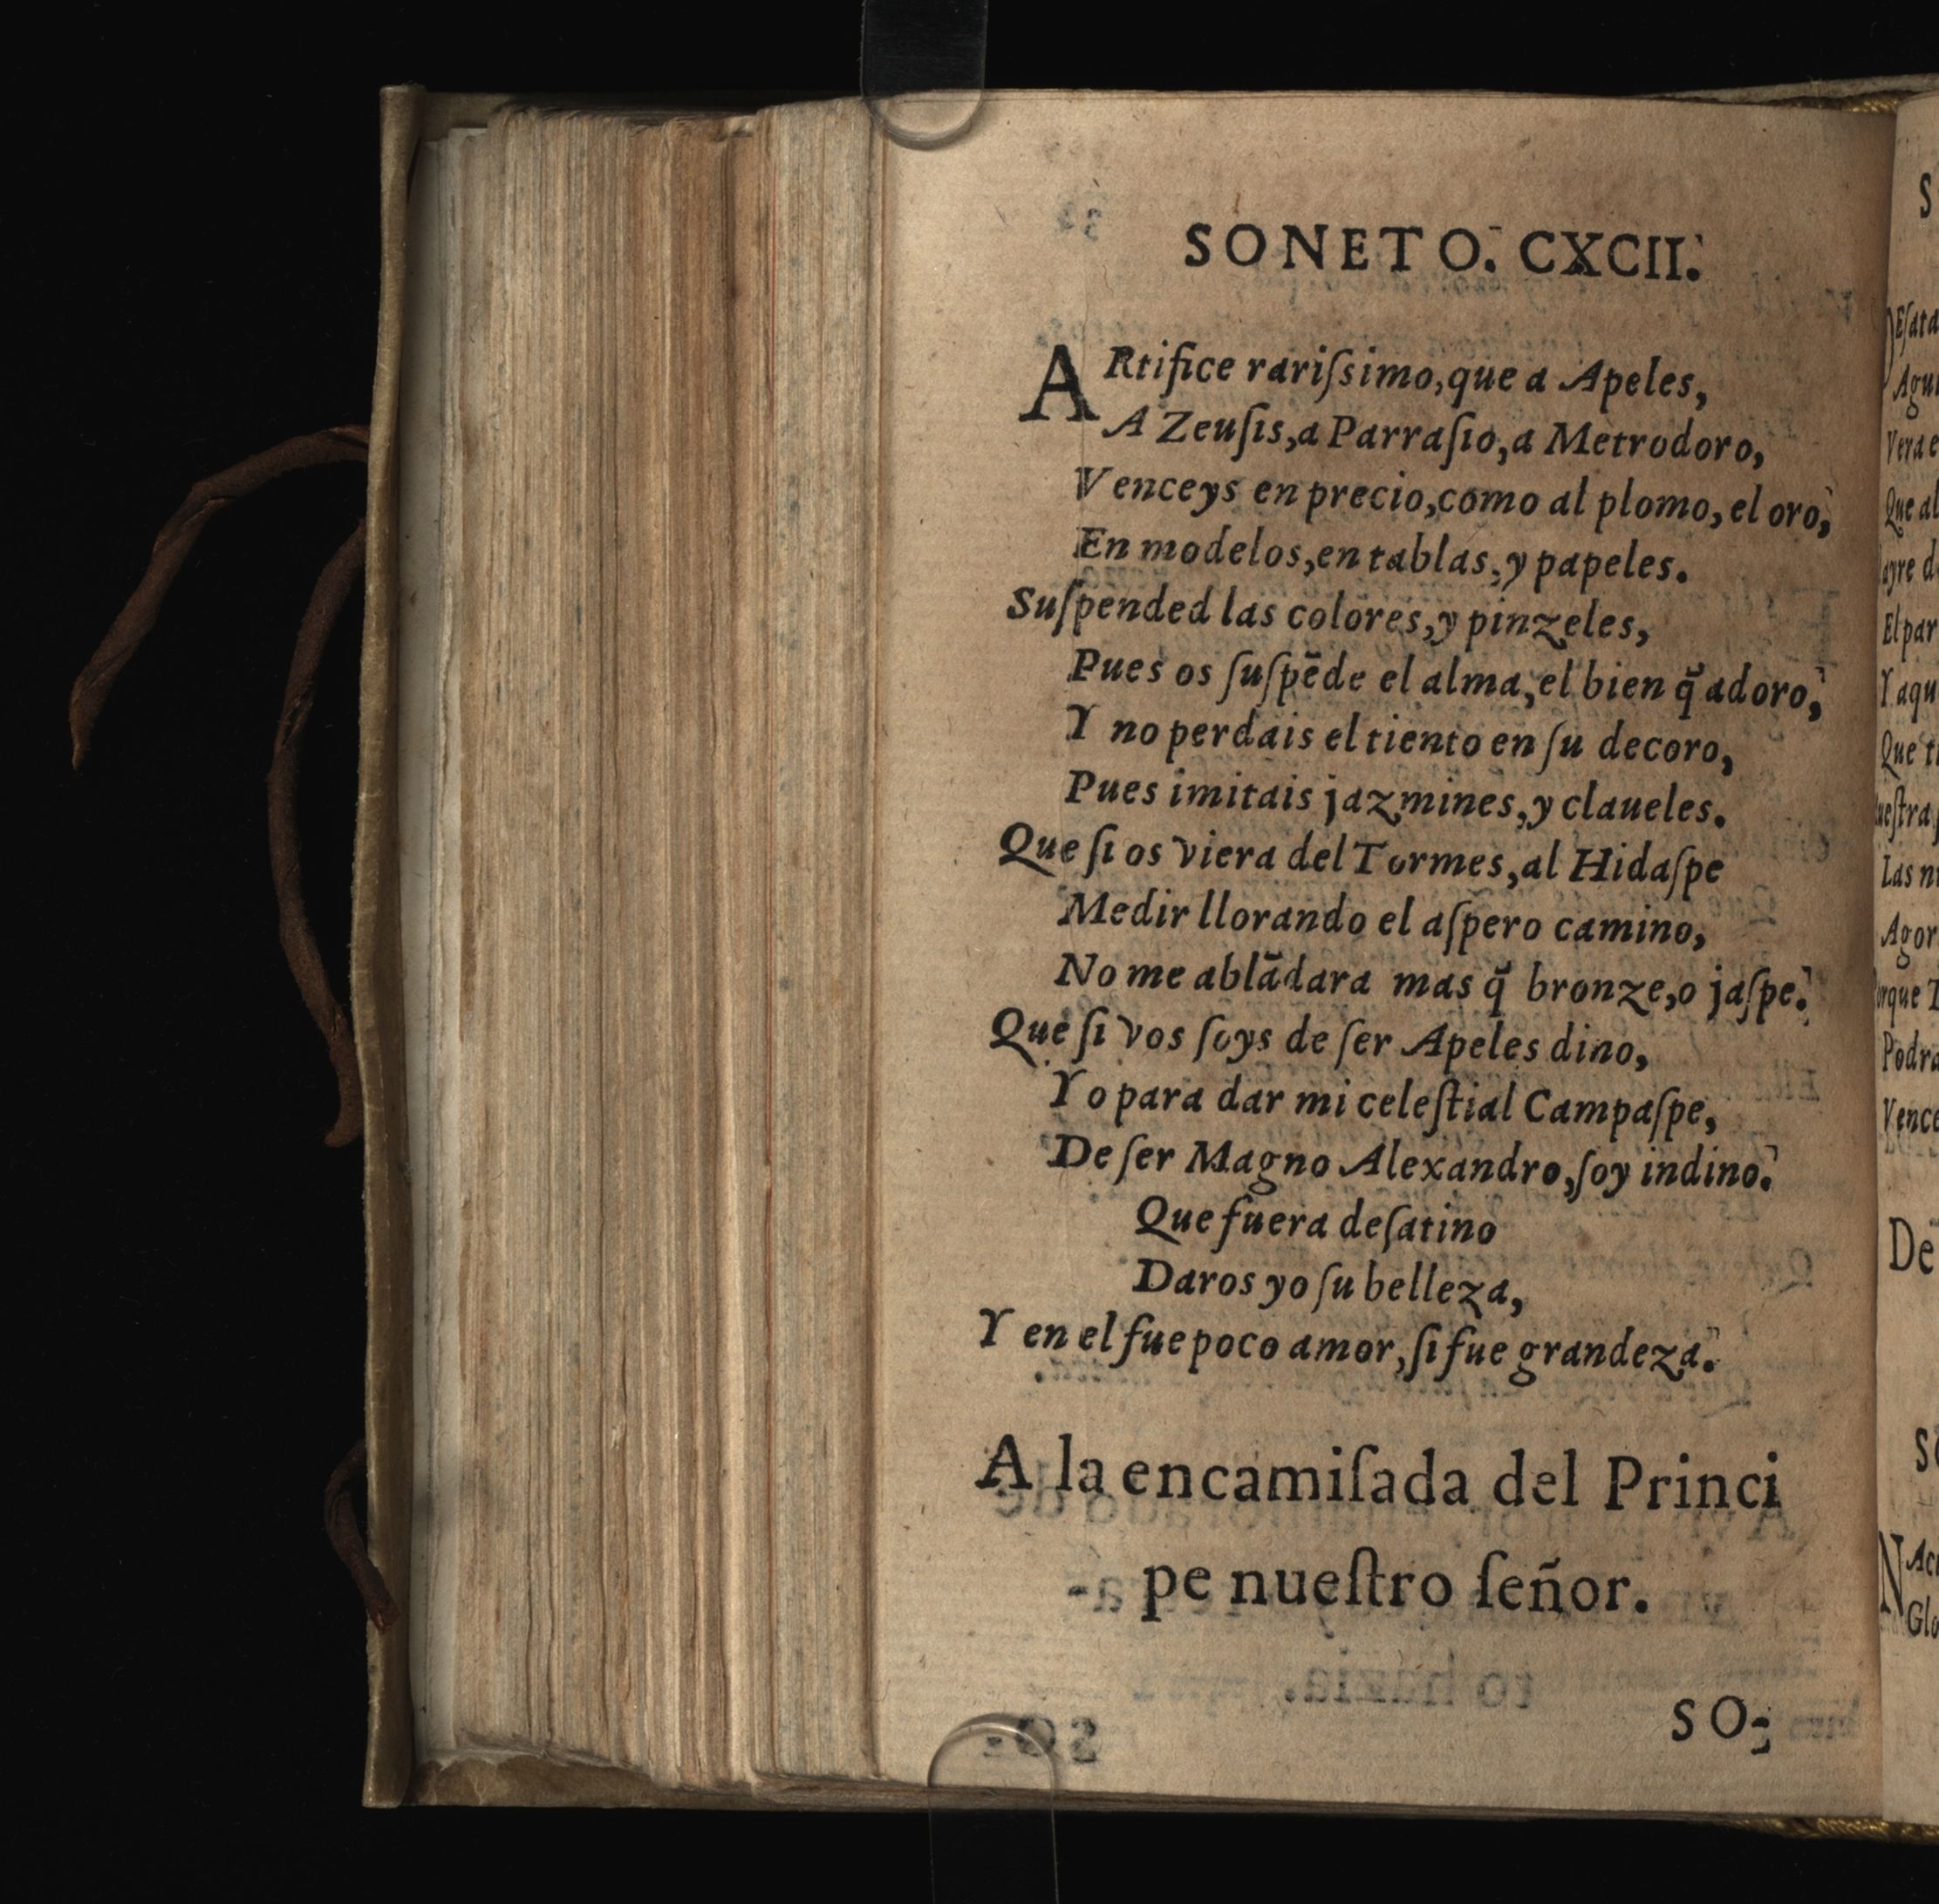 SONETO. CXCII.
ARtifice rariſsimo, que a Apeles,
A Zeuſis, a Parraſio, a Metrodoro,
Venceys en precio, como al plomo, el oro,
En modelos, en tablas, y papeles.
Suſpended las colores, y pinzeles,
Pues os ſuſpẽde el alma, el bien q̃ adoro,
Y no perdais el tiento en ſu decoro,
Pues imitais jazmines, y claueles.
Que ſi os viera del Tormes, al Hidaſpe
Medir llorando el aſpero camino,
No me ablãdara mas q̃ bronze, o jaſpe.
Que ſi vos ſoys de ſer Apeles dino,
Yo para dar mi celeſtial Campaſpe,
De ſer Magno Alexandro, ſoy indino.
Que fuera deſatino
Daros yo ſu belleza,
Y en el fue poco amor, ſi fue grandeza.
A la encamiſada del Princi
pe nueſtro ſeñor.
SO-